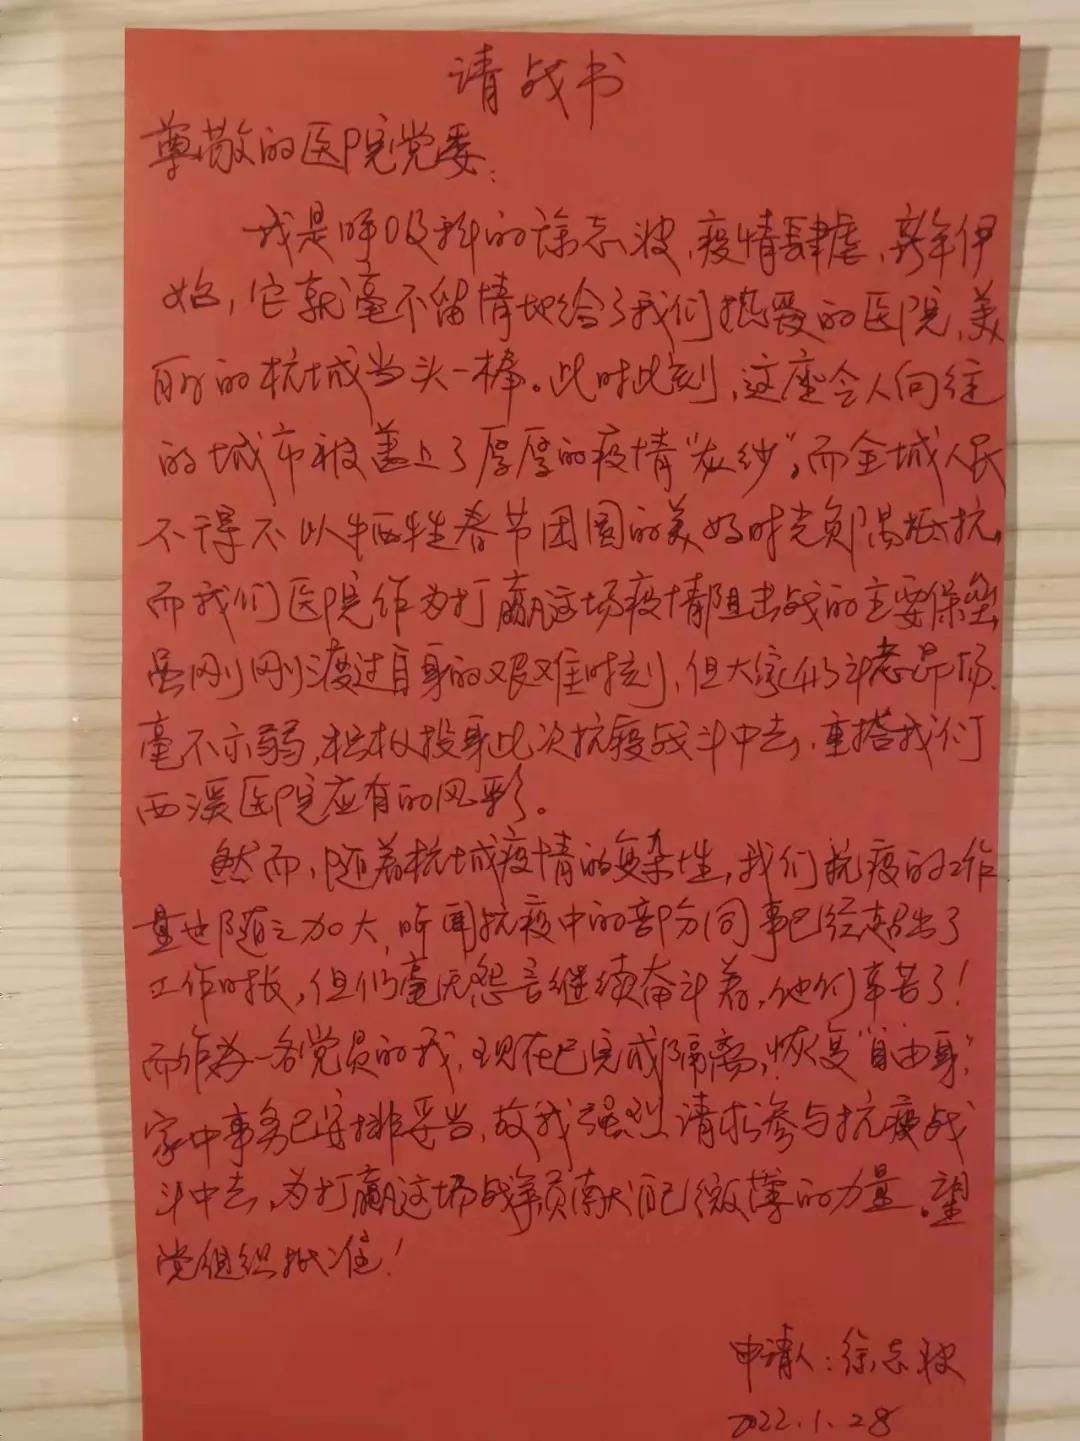 请战书
尊敬的医院党委:
我是呼吸科的徐志波,疫情肆虐,新年伊
始,它就毫不留情地给了我们热爱的医院,美
丽的杭城当头一棒。此时此刻,这座令人向往
的城市被盖上了厚厚的疫情“灰纱”,而全城人民
不得不以牺牲春节团圆的美好时光负隅抵抗,
而我们医院作为打赢这场疫情阻击战的主要保垒,
虽刚刚渡过自身的艰难时刻,但大家仍斗志昂扬,
毫不示弱,积极投身此次抗疫战斗中去,重塔我们
西溪医院应有的风彩。
然而,随着杭城疫情的复杂性,我们抗疫的工作
量也随之加大,听闻抗疫中的部分同事已经超出了
工作时长,但仍毫无怨言继续奋斗着,他们辛苦了!
而作为一名党员的我,现在已完成隔离,恢复“自由身”,
家中事务已安排妥当,故我强烈请求参与抗疫战
斗中去,为打赢这场战争贡献自己微薄的力量,望
党组织批准!
申请人:徐志波
2022.1.28